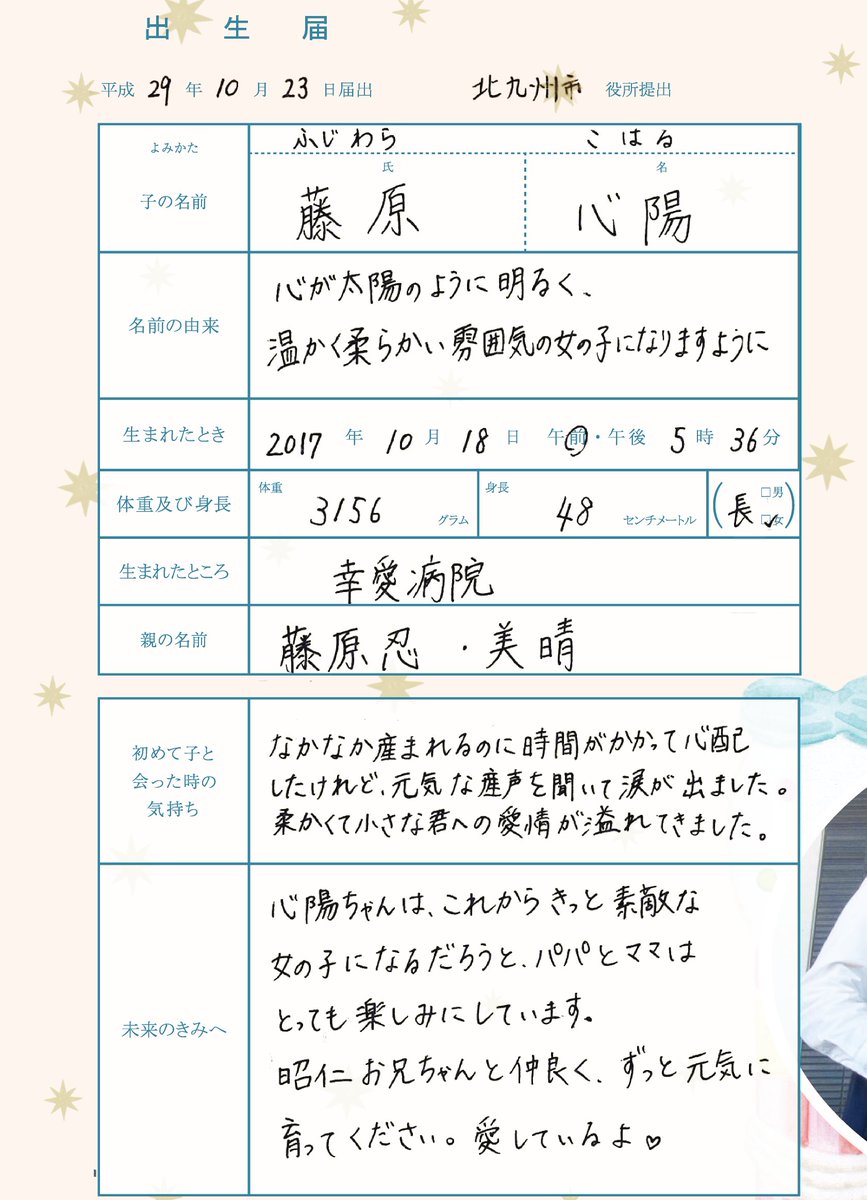 出生届
平成 29 年 10 月 23 日届出 北九州市 役所提出
よみかた ふじわら こはる
氏 名
子の名前 藤原 心陽
名前の由来
心が太陽のように明るく、
温かく柔らかい雰囲気の女の子になりますように
生まれたとき 2017 年 10 月 18 日 午前・午後 5 時 36 分
体重及び身長 体重 3156 グラム 身長 48 センチメートル (長 □男 □女)
生まれたところ 幸愛病院
親の名前 藤原忍・美晴
初めて子と
会った時の
気持ち
なかなか産まれるのに時間がかかって心配
したけれど、元気な産声を聞いて涙が出ました。
柔かくて小さな君への愛情が溢れてきました。
未来のきみへ
心陽ちゃんは、これからきっと素敵な
女の子になるだろうと、パパとママは
とっても楽しみにしています。
昭仁お兄ちゃんと仲良く、ずっと元気に
育ってください。愛しているよ♡